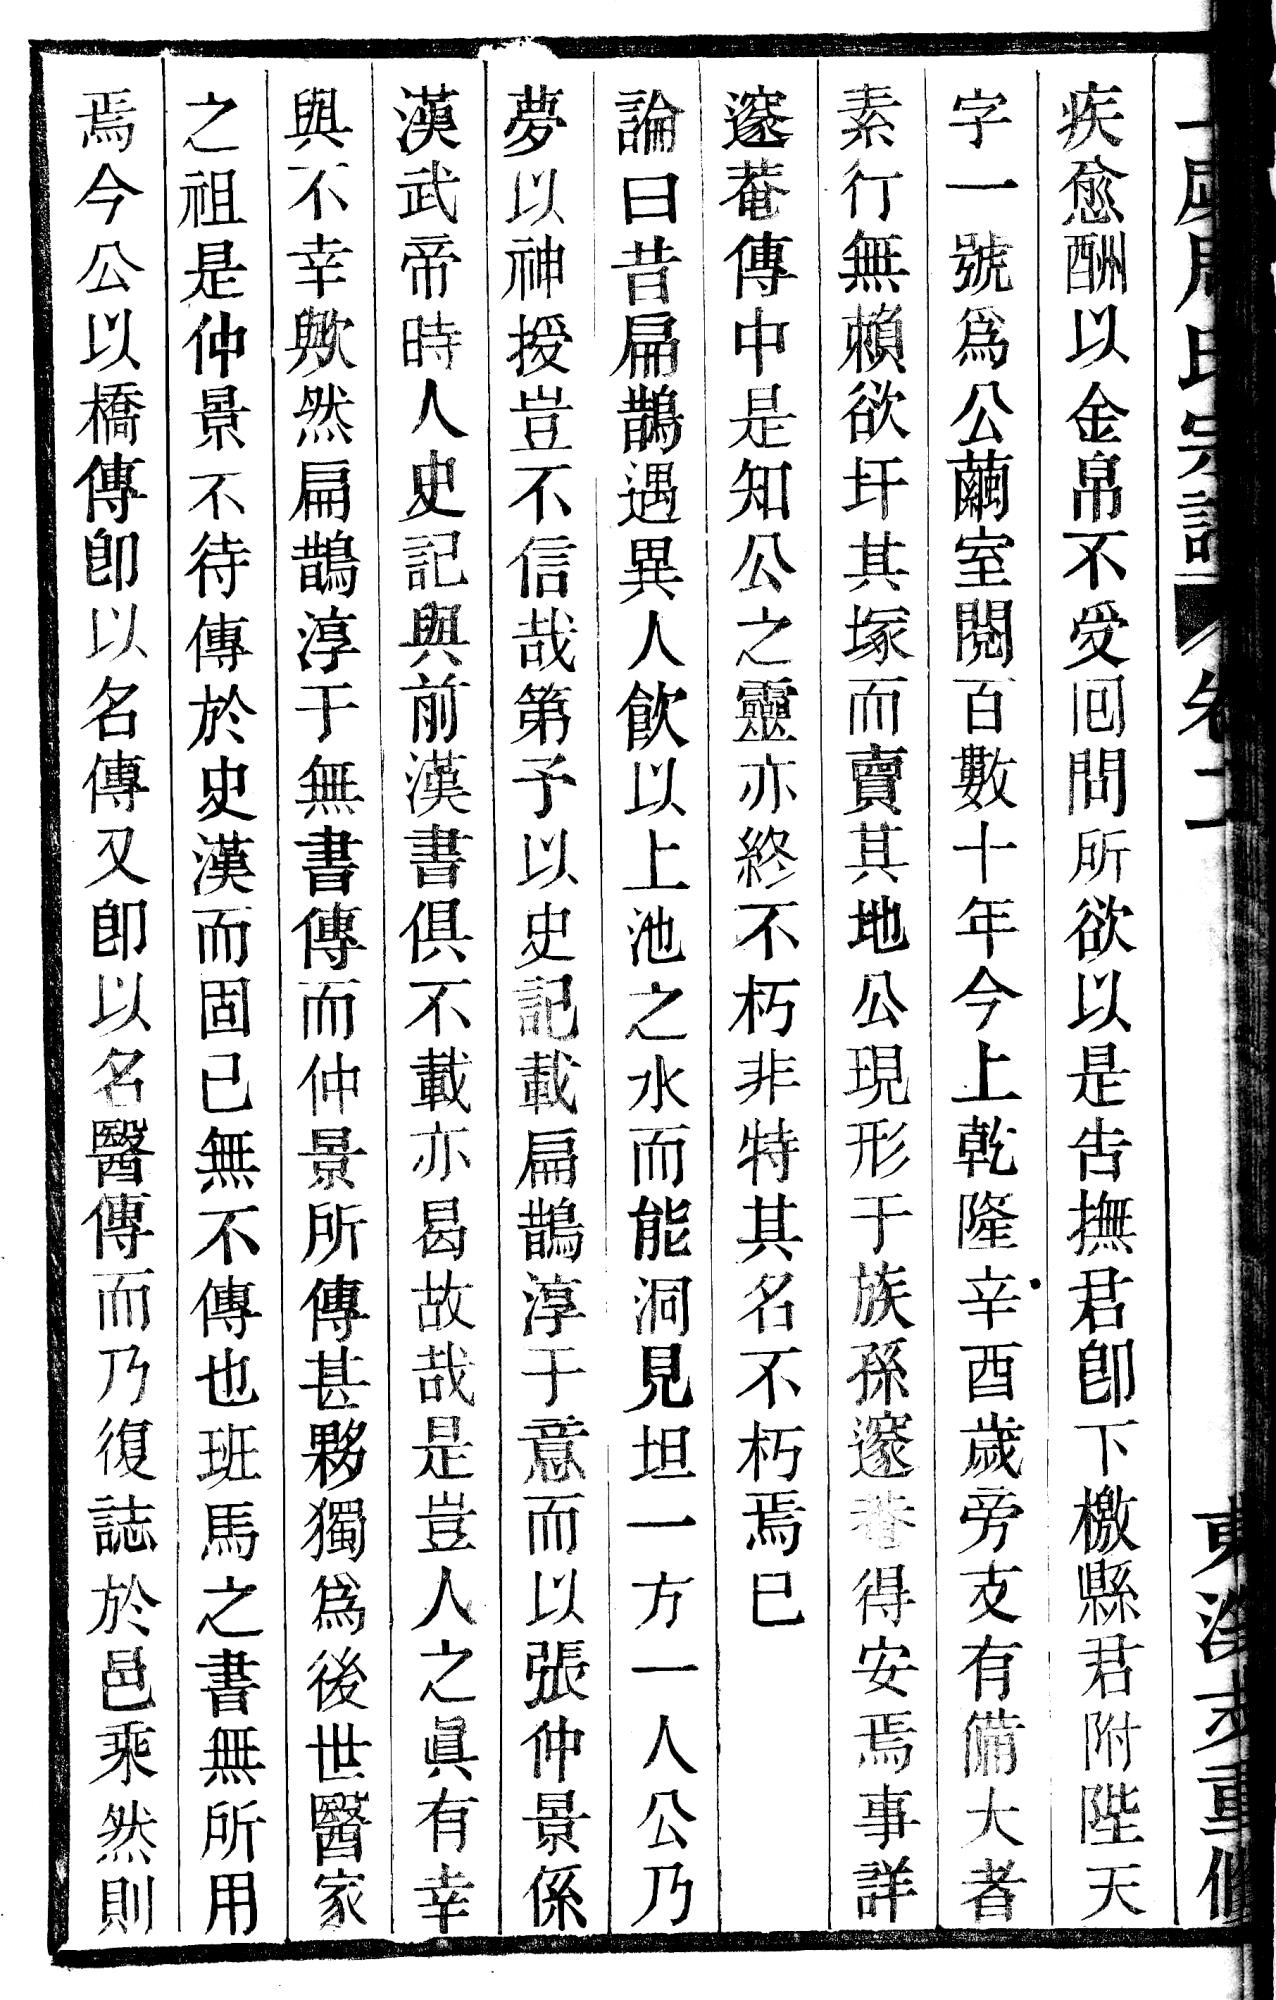 疾愈酬以金帛不受囘問所欲以是告撫君卽下檄縣君附陛天
字一號爲公繭室閱百數十年今上乾隆辛酉歲旁支有備大者
素行無賴欲圩其塚而賣其地公現形于族孫邃菴得安焉事詳
邃菴傳中是知公之靈亦終不朽非特其名不朽焉已
論曰昔扁鵲遇異人飮以上池之水而能洞見垣一方一人公乃
夢以神授豈不信哉第予以史記載扁鵲淳于意而以張仲景係
漢武帝時人史記與前漢書俱不載亦曷故哉是豈人之眞有幸
與不幸歟然扁鵲淳于無書傳而仲景所傳甚夥獨爲後世醫家
之祖是仲景不待傳於史漢而固已無不傳也班馬之書無所用
焉今公以橋傳卽以名傳又卽以名醫傳而乃復誌於邑乘然則